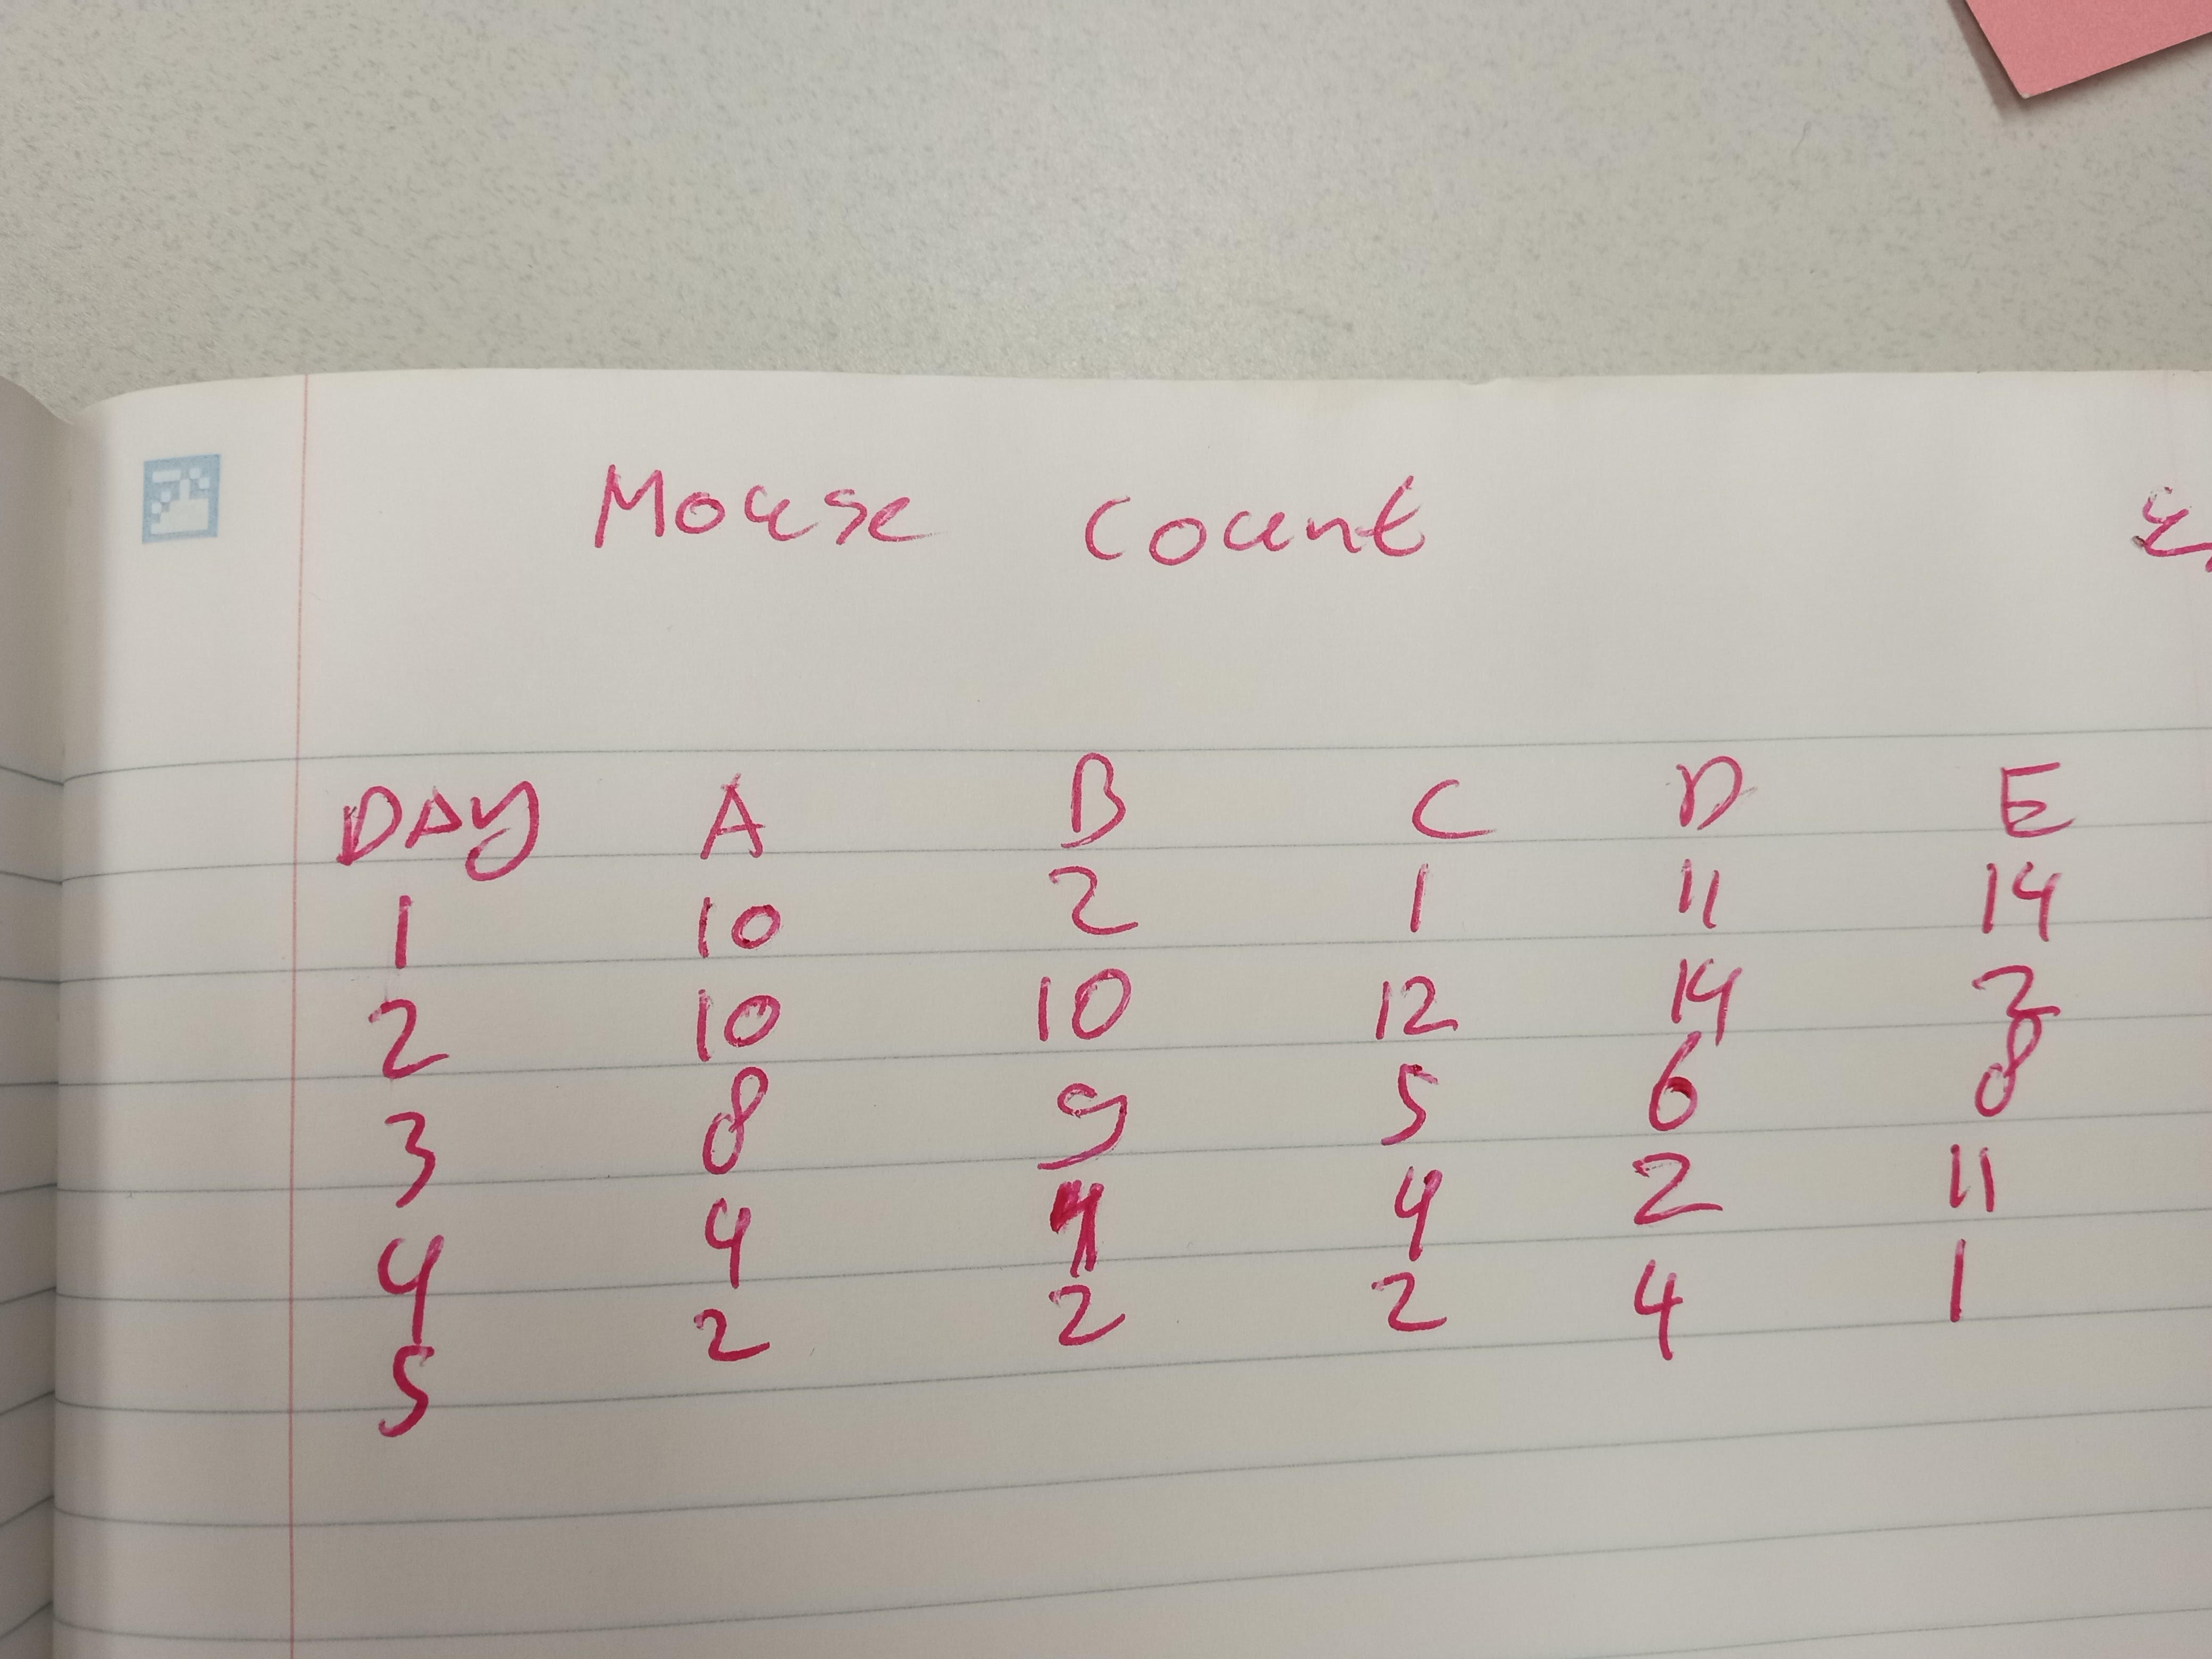 Mouse count
DAY A B C D E
1 10 2 1 11 14
2 10 10 12 14 2
3 8 9 5 6 8
4 4 4 4 2 11
5 2 2 2 4 1